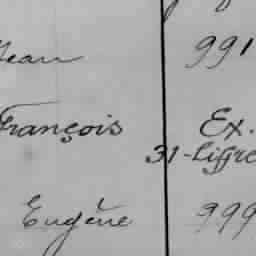 Jean 991
François Ex.
31-Liffré
Eugène 999